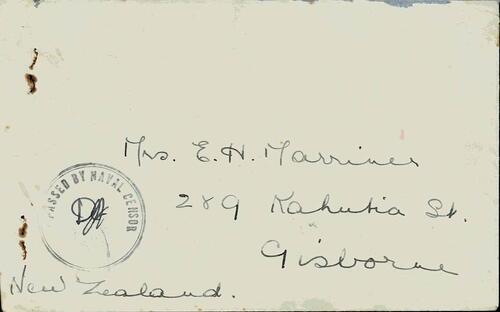 Mrs. E. H. Marriner
289 Kahutia St.
Gisborne
New Zealand.
PASSED BY NAVAL CENSOR